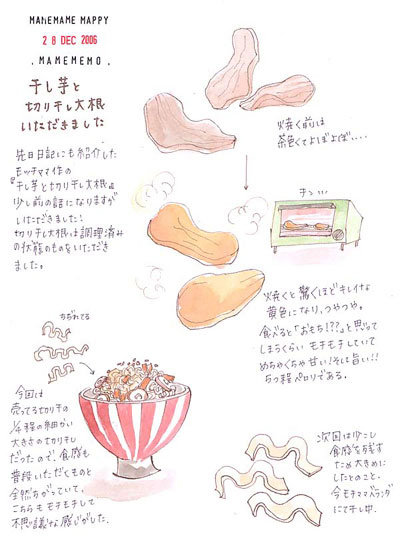 MAMEMAME MAPPY
28 DEC 2006
.MAMEMEMO.
干し芋と
切り干し大根
いただきました
先日日記にも紹介した
モッチママ作の
『干し芋と切り干し大根』
少し前の話になりますが
いただきました!
切り干し大根は調理済み
の状態のものをいただき
ました。
焼く前は
茶色くてよぼよぼ....
チン...
焼くと驚くほどキレイな
黄色になり、つやつや。
食べると「おもち!??」と思って
しまうくらい モチモチしていて
めちゃくちゃ甘い!そして旨い!!
5つ程ペロリである。
ちぢれてる
今回は
売ってる切り干の
1/4程の細かい
大きさの切り干し
だったので、食感も
普段いただくものと
全然ちがっていて、
こちらもモチモチして
不思議な感じがした。
次回は少し
食感を残す
ため大きめに
したとのこと。
今モチママベランダ
にて干し中。